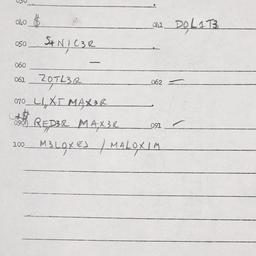 040 $ 042 DOL1TB
050 S4NIC3R
060 —
061 ZOTL3R 062 —
070 LI,XT MAX3R
090 RED3R MAX3R 091
100 M3LOXES / MALOXIM